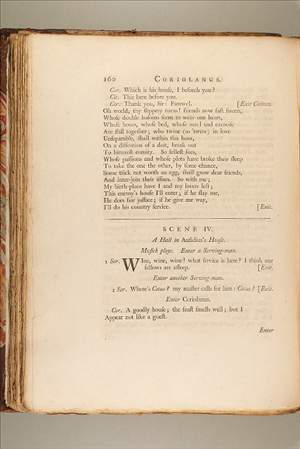 160 CORIOLANUS.
Cor. Which is his house, I beseech you?
Cit. This here before you.
Cor. Thank you, Sir: Farewel. [Exit Citizen.
Oh world, thy slippery turns! friends now fast sworn,
Whose double bosoms seem to wear one heart,
Whose hours, whose bed, whose meal and exercise
Are still together; who twine (as 'twere) in love
Unseparable, shall within this hour,
On a dissention of a doit, break out
To bitterest enmity. So fellest foes,
Whose passions and whose plots have broke their sleep
To take the one the other, by some chance,
Some trick not worth an egg, shall grow dear friends,
And inter-join their issues. So with me;
My birth-place have I and my lovers left;
This enemy's house I'll enter; if he slay me,
He does fair justice; if he give me way,
I'll do his country service. [Exit.
SCENE IV.
A Hall in Aufidius's House.
Musick plays. Enter a Serving-man.
1 Ser. WIne, wine, wine! what service is here? I think our
fellows are asleep. [Exit.
Enter another Serving-man.
2 Ser. Where's Cotus? my master calls for him: Cotus? [Exit.
Enter Coriolanus.
Cor. A goodly house; the feast smells well; but I
Appear not like a guest.
Enter